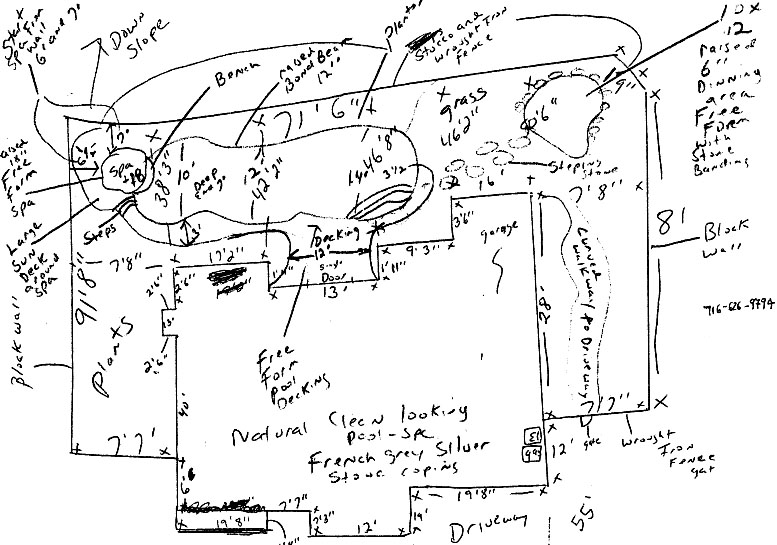 Down
Slope
Bench
raised
Bond Beam
12"
Planter
Stucco and
wrought Iron
Fence
10 x
12
raised
6"
Dinning
area
Free
Form
with
Stone
Banding
9"
71' 6"
grass
46'2"
Spa
38'3"
10'
Deep
12'
42'2"
46'8"
3 1/2
Stepping
Stone
Free
Form
Spa
Large
Sun
Deck
around
Spa
Steps
3'
Decking
12'
Door
13'
16'
3'6"
9'3"
1'11"
garage
7'8"
81'
Block
wall
716-626-9794
7'8"
17'2"
2'6"
2'6"
91'8"
Block wall
Plants
40'
28'
Curved
walkway to Driveway
Free
Form
Pool
Decking
Natural Clean looking
Pool-Spa
French grey Silver
Stone coping
7'7"
7'7"
wrought
Iron
Fence
gat
12'
19'8"
19'8"
7'7"
7'3"
12'
19'
Driveway
55'